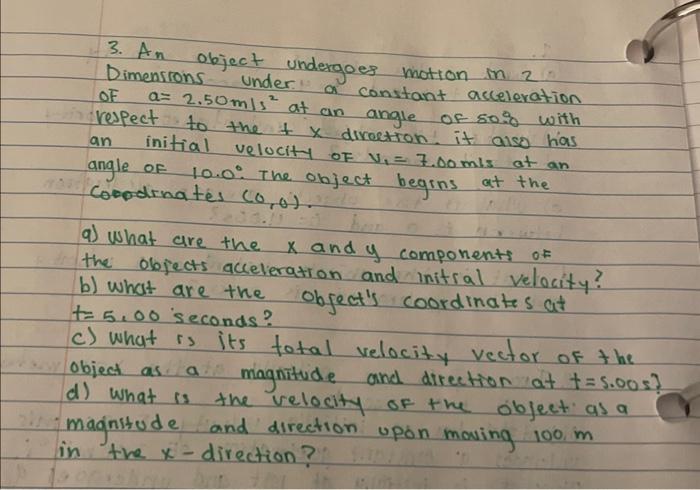 3. An object undergoes motion in 2
Dimensions under a constant acceleration
of a= 2.50m/s² at an angle of 50% with
respect to the + x direction. it also has
an initial velocity of V₁= 7.00m/s at an
angle of 10.0° The object begins at the
Coordinates (0,0).
a) what are the x and y components of
the objects acceleration and initial velocity?
b) what are the object's coordinates at
t= 5.00 seconds?
c) what is its total velocity vector of the
object as a magnitude and direction at t=5.00s?
d) what is the velocity of the object as a
magnitude and direction upon moving 100 m
in the x-direction?